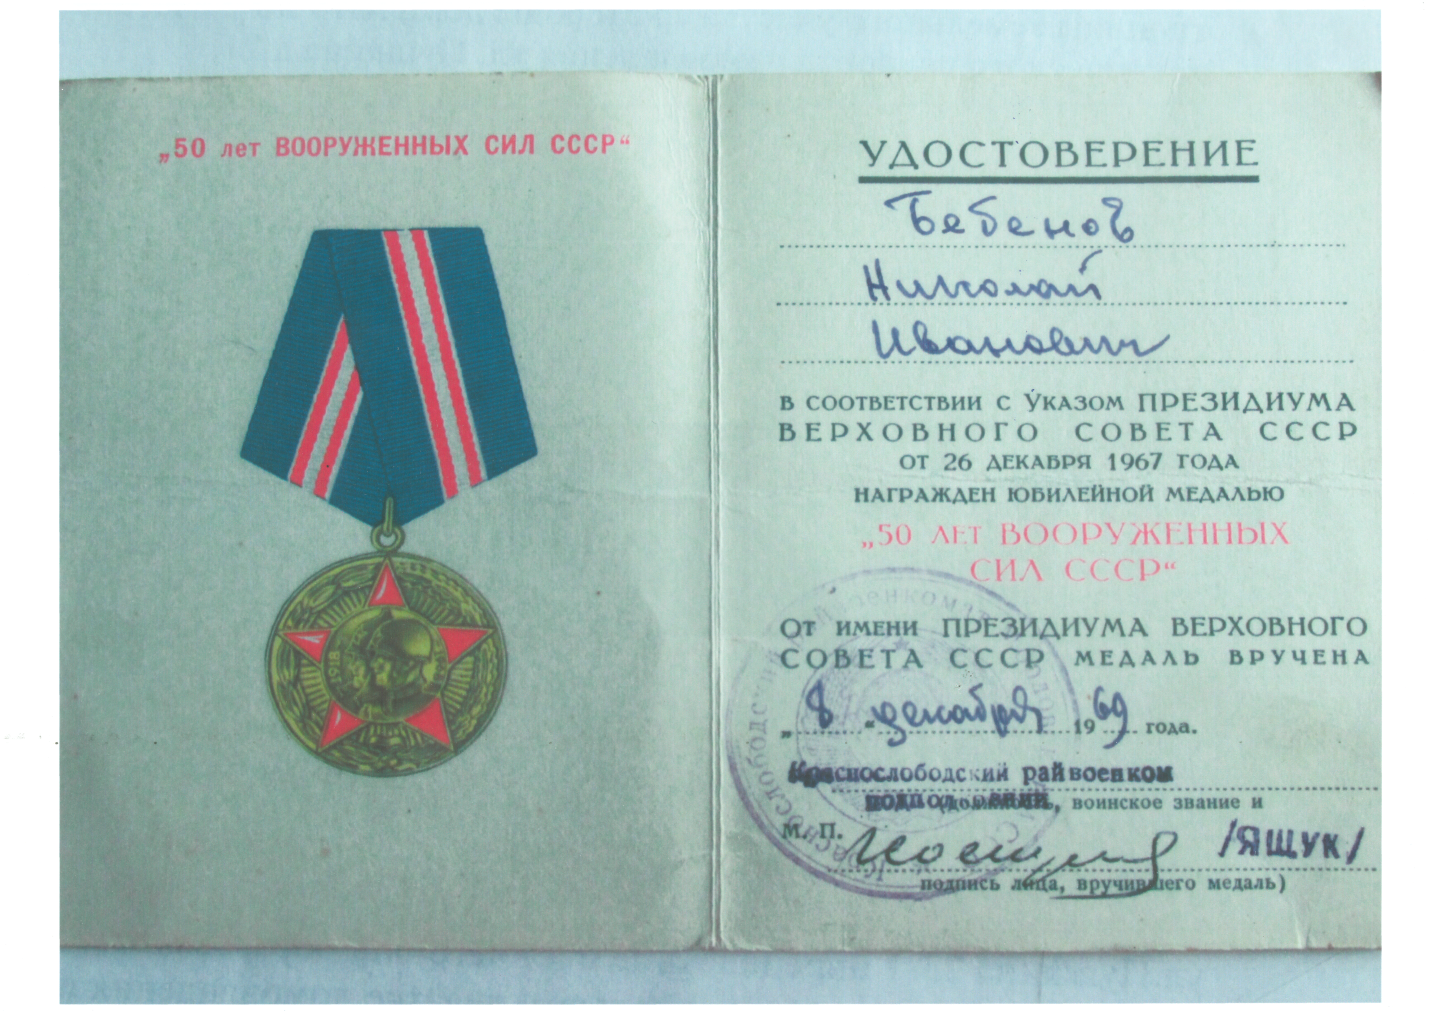 „50 лет ВООРУЖЕННЫХ СИЛ СССР“
1918
УДОСТОВЕРЕНИЕ
Бебенов
Николай
Иванович
В СООТВЕТСТВИИ С УКАЗОМ ПРЕЗИДИУМА
ВЕРХОВНОГО СОВЕТА СССР
ОТ 26 ДЕКАБРЯ 1967 ГОДА
НАГРАЖДЕН ЮБИЛЕЙНОЙ МЕДАЛЬЮ
„50 ЛЕТ ВООРУЖЕННЫХ
СИЛ СССР“
ОТ ИМЕНИ ПРЕЗИДИУМА ВЕРХОВНОГО
СОВЕТА СССР МЕДАЛЬ ВРУЧЕНА
„8“ декабря 1969 года.
Краснослободский райвоенком
(должность, воинское звание и
М. П.
/ЯЩУК/
подпись лица, вручившего медаль)